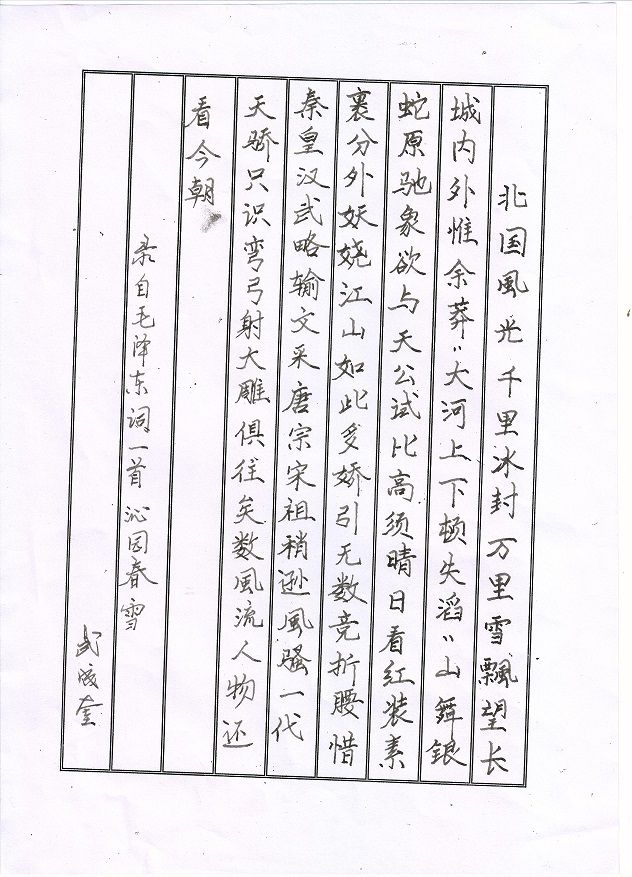 北国風光千里冰封万里雪飄望长
城内外惟余莽〃大河上下顿失滔〃山舞银
蛇原驰象欲与天公试比高须晴日看红装素
裹分外妖娆江山如此多娇引无数竞折腰惜
秦皇汉武略输文采唐宗宋祖稍逊風骚一代
天骄只识弯弓射大雕俱往矣数風流人物还
看今朝
录自毛泽东词一首 沁园春雪